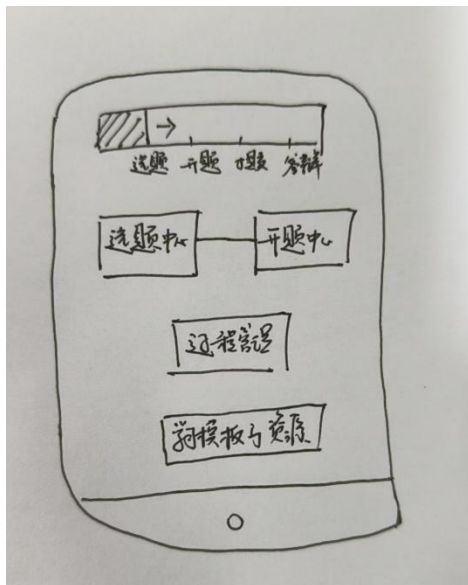 选题 开题 中期 答辩
选题中心 开题中心
过程管理
模板与资源